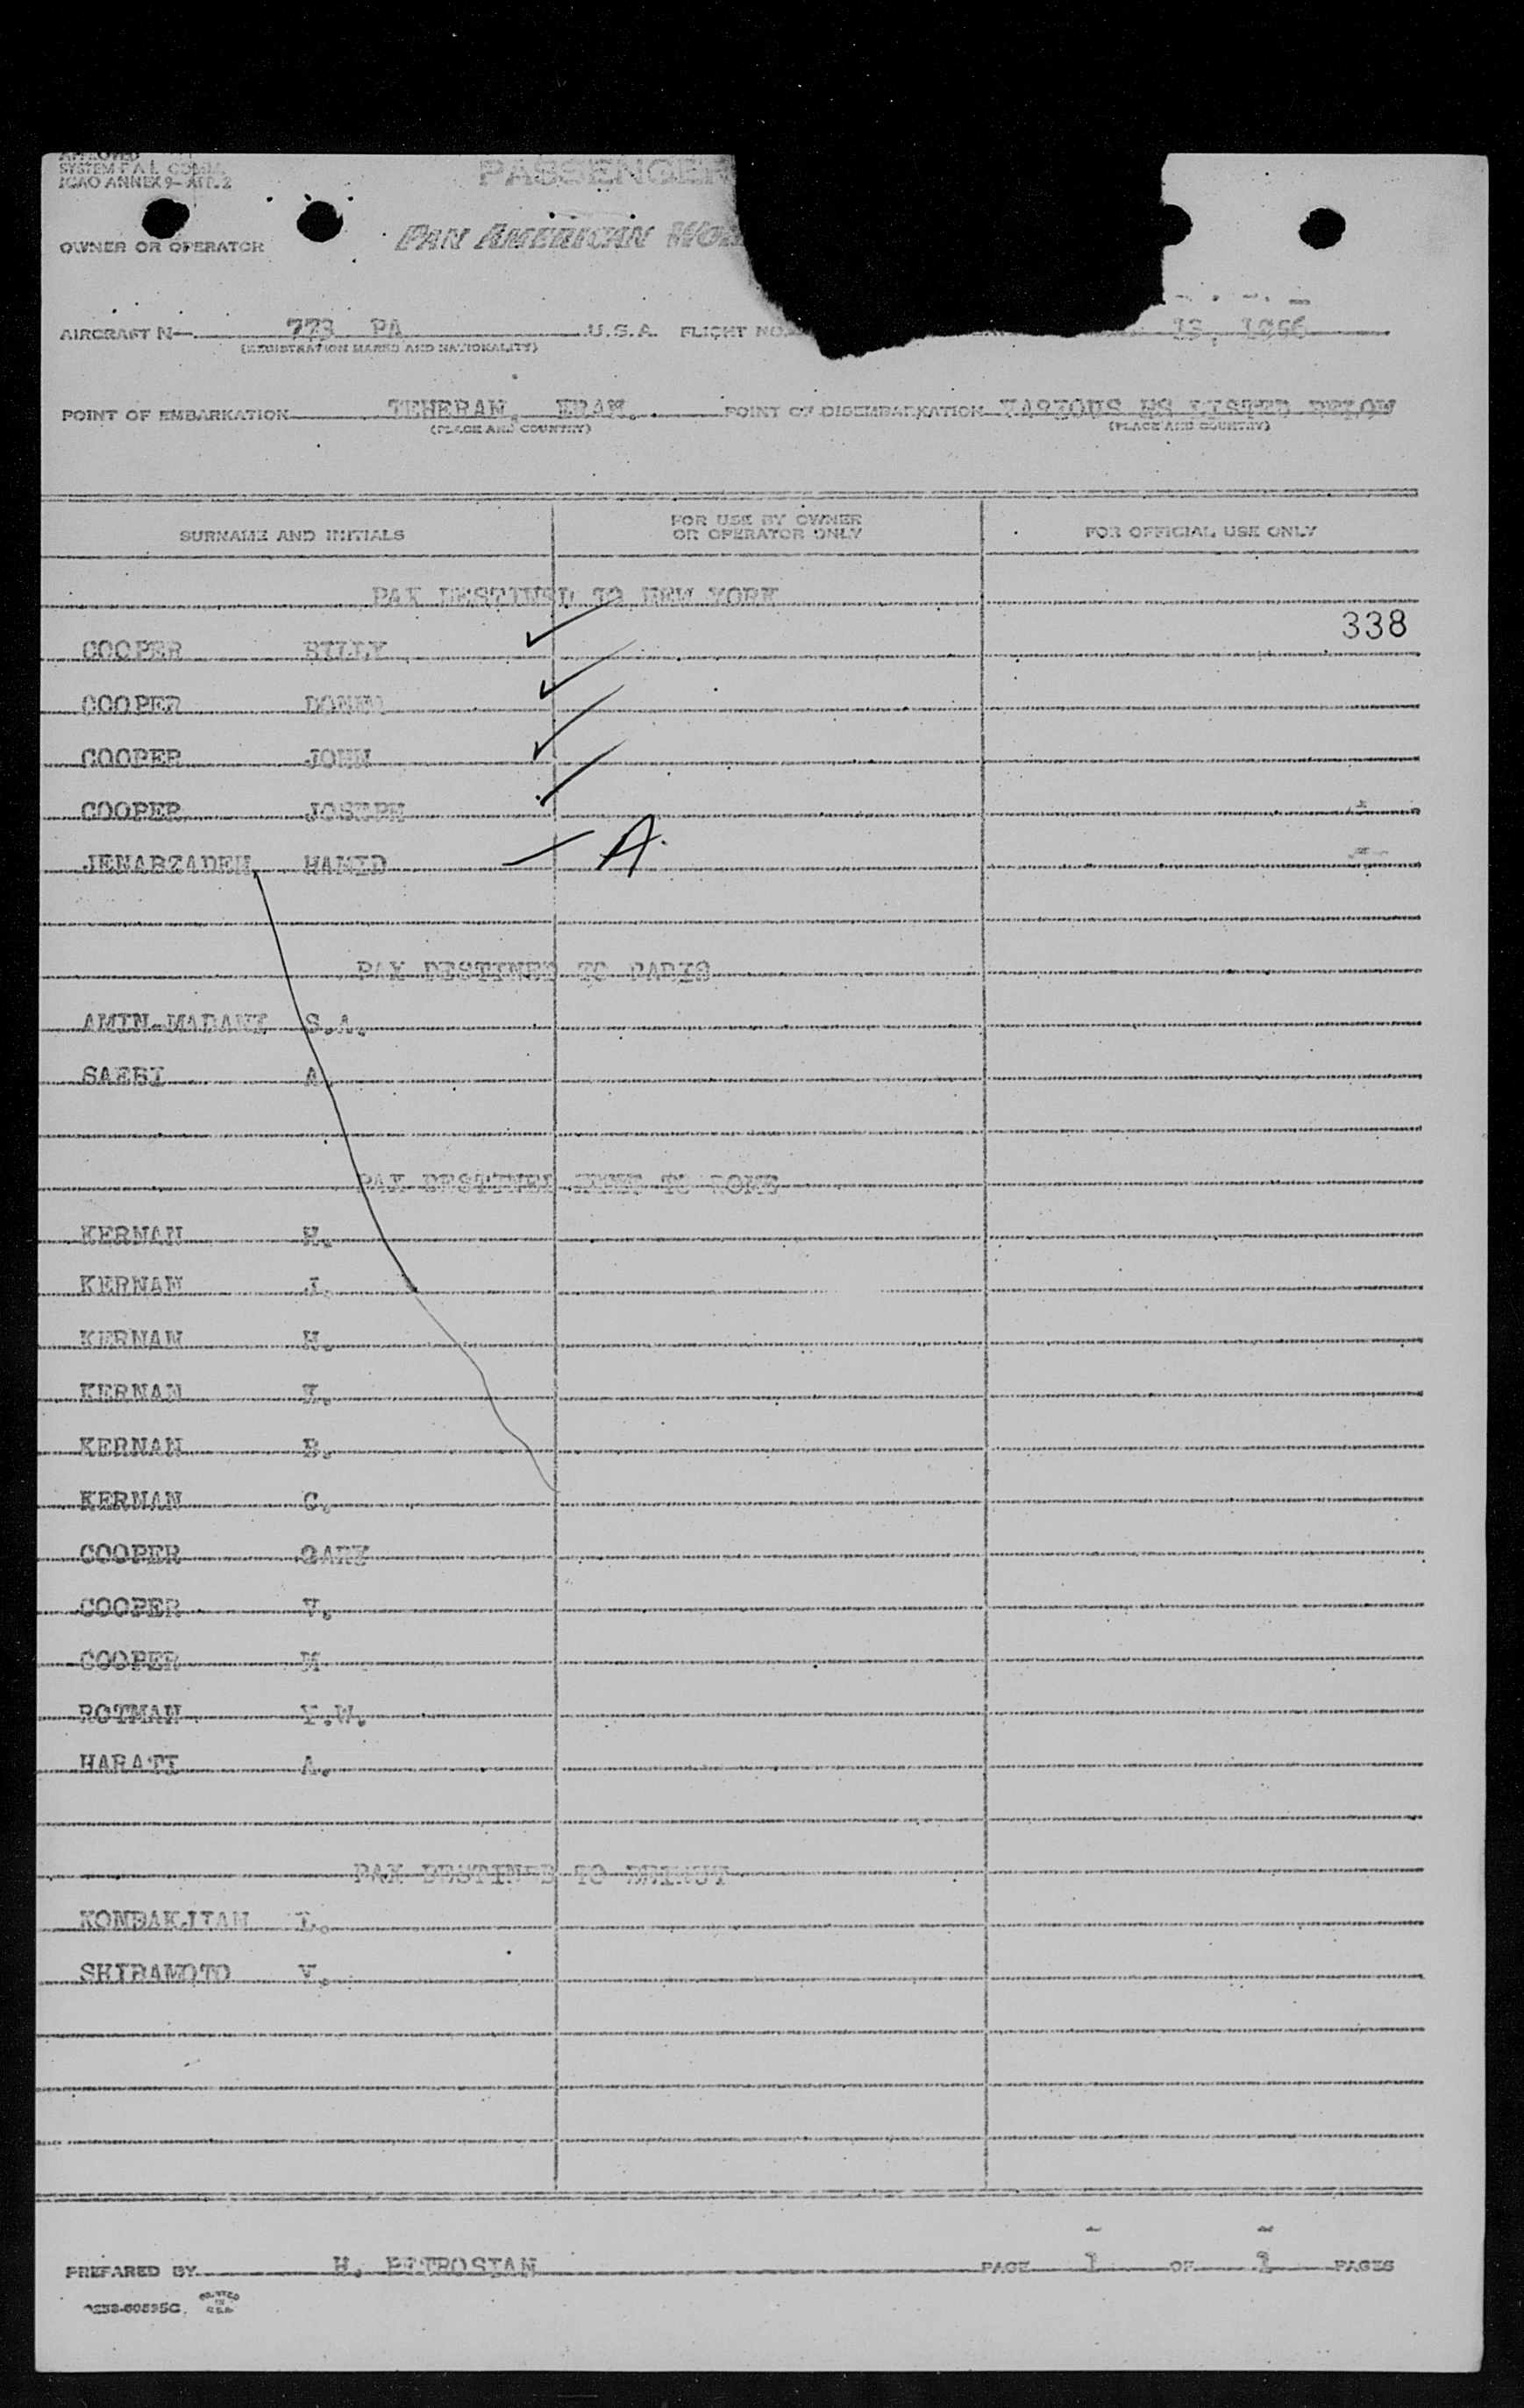 APPROVED
SYSTEM F.A.L. COMM.
ICAO ANNEX 9- APP. 2
PASSENGER
OWNER OR OPERATOR PAN AMERICAN WOR
AIRCRAFT N— 773 PA U.S.A. FLIGHT NO. 13, 1966
(REGISTRATION MARKS AND NATIONALITY)
POINT OF EMBARKATION TEHERAN, IRAN. POINT OF DISEMBARKATION VARIOUS AS LISTED BELOW
(PLACE AND COUNTRY) (PLACE AND COUNTRY)
SURNAME AND INITIALS FOR USE BY OWNER OR OPERATOR ONLY FOR OFFICIAL USE ONLY
PAX DESTINED TO NEW YORK
338
COOPER BILLY
COOPER
COOPER JOHN
COOPER JOSEPH
JENABZADEH HAMID A.
PAX DESTINED TO PARIS
AMIN-MADANI S.A.
SAEBI A.
PAX DESTINED TO ROME
KERNAN H.
KERNAN J.
KERNAN
KERNAN K.
KERNAN B.
KERNAN C.
COOPER GARY
COOPER V.
COOPER M
ROTMAN Y.W.
HARATI A.
PAX DESTINED TO BEIRUT
KONDAKJIAN L.
SHIRAMOTO Y.
PREPARED BY H. PETROSIAN PAGE 1 OF 1 PAGES
PRINTED IN U.S.A.